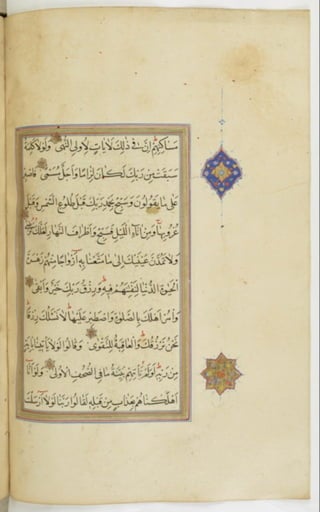 مَسَاكِنِهِمْ اِنَّ فِي ذٰلِكَ لَاٰيَاتٍ لِاُولِي النُّهٰى وَلَوْلَا كَلِمَةٌ
سَبَقَتْ مِنْ رَبِّكَ لَكَانَ لِزَامًا وَاَجَلٌ مُسَمًّى فَاصْبِرْ
عَلٰى مَا يَقُولُونَ وَسَبِّحْ بِحَمْدِ رَبِّكَ قَبْلَ طُلُوعِ الشَّمْسِ وَقَبْلَ
غُرُوبِهَا وَمِنْ اٰنَاۤءِ اللَّيْلِ فَسَبِّحْ وَاَطْرَافَ النَّهَارِ لَعَلَّكَ تَرْضٰى
وَلَا تَمُدَّنَّ عَيْنَيْكَ اِلٰى مَا مَتَّعْنَا بِهِ اَزْوَاجًا مِنْهُمْ زَهْرَةَ
الْحَيٰوةِ الدُّنْيَا لِنَفْتِنَهُمْ فِيهِ وَرِزْقُ رَبِّكَ خَيْرٌ وَاَبْقٰى
وَأْمُرْ اَهْلَكَ بِالصَّلٰوةِ وَاصْطَبِرْ عَلَيْهَا لَا نَسْئَلُكَ رِزْقًا
نَحْنُ نَرْزُقُكَ وَالْعَاقِبَةُ لِلتَّقْوٰى وَقَالُوا لَوْلَا يَأْتِينَا بِاٰيَةٍ
مِنْ رَبِّهِ اَوَلَمْ تَأْتِهِمْ بَيِّنَةُ مَا فِي الصُّحُفِ الْاُولٰى وَلَوْ اَنَّا
اَهْلَكْنَاهُمْ بِعَذَابٍ مِنْ قَبْلِهِ لَقَالُوا رَبَّنَا لَوْلَا اَرْسَلْتَ